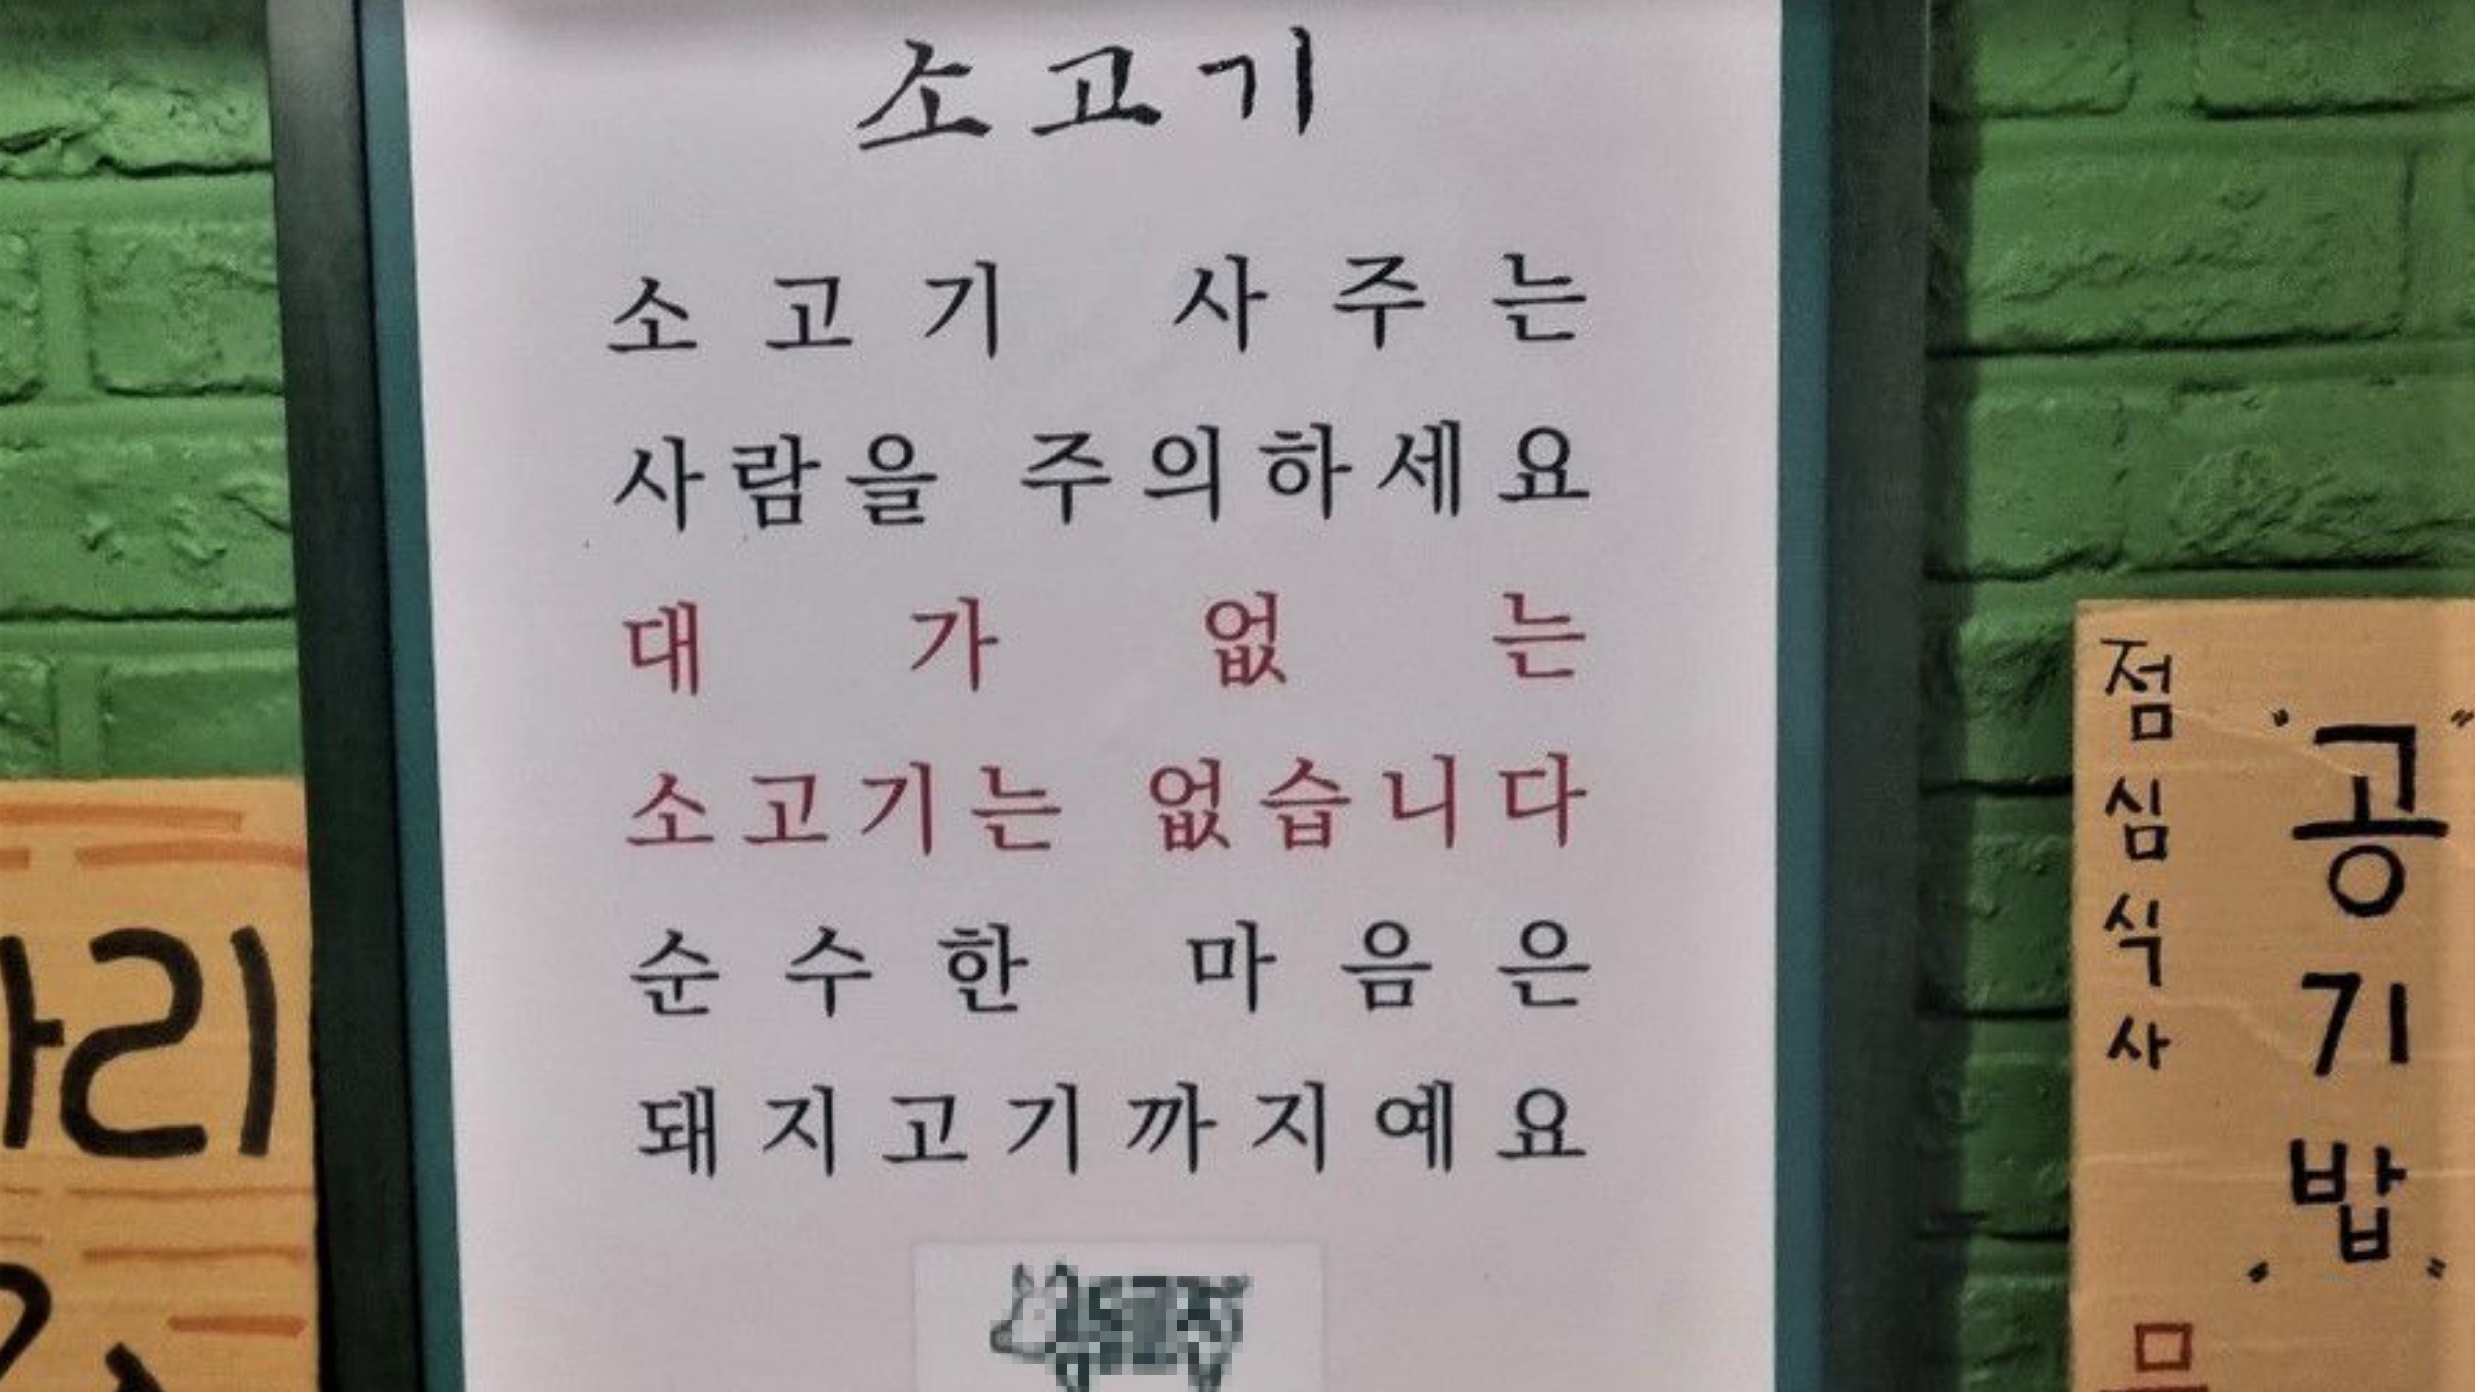 소고기
소고기 사주는
사람을 주의하세요
대가없는
소고기는 없습니다
순수한 마음은
돼지고기까지예요
점심식사
"공기밥"